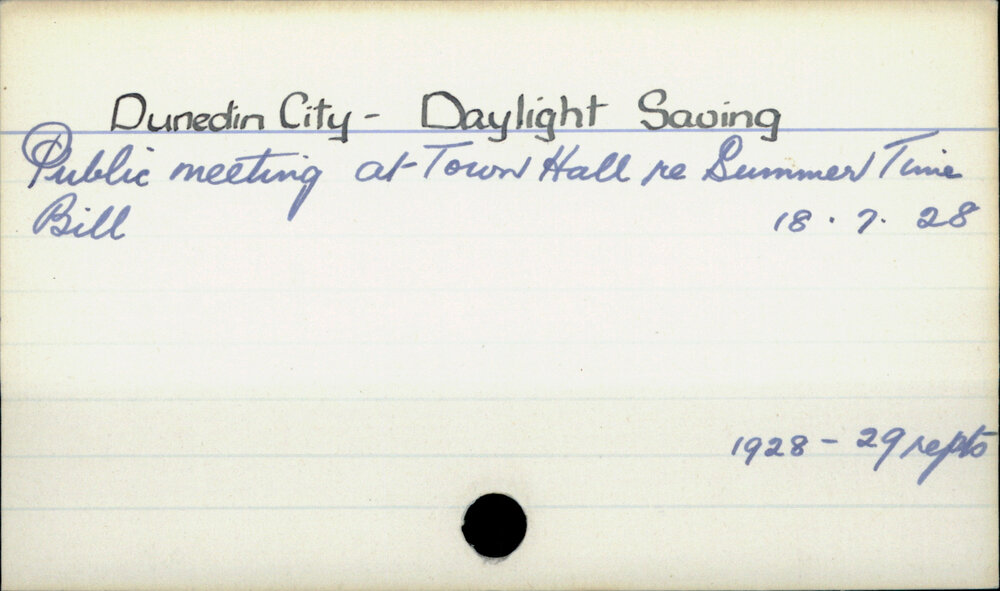 Dunedin City - Daylight Saving
Public meeting at Town Hall re Summer Time
Bill 18. 7. 28
1928 - 29 repts